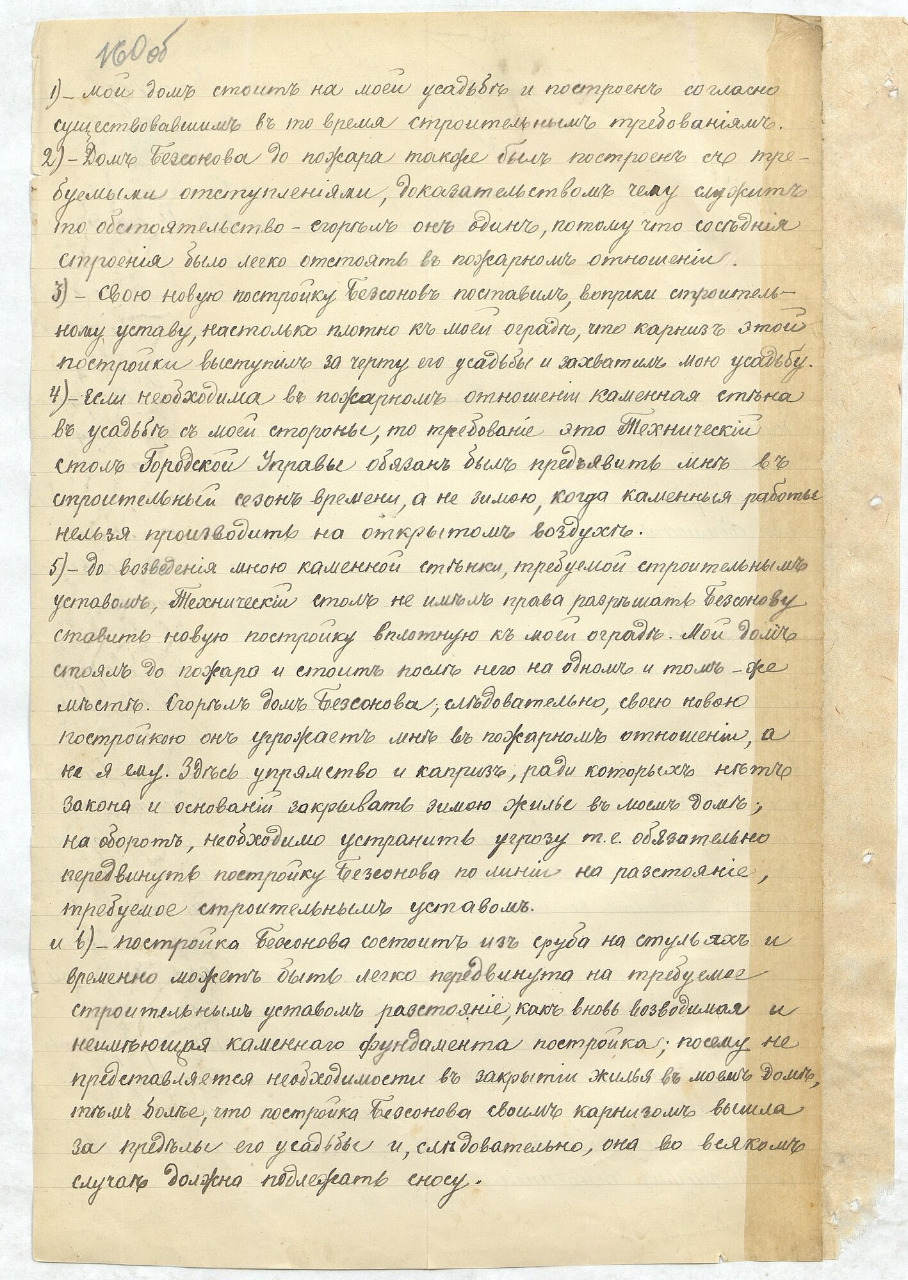 160 об
1) – Мой домъ стоитъ на моей усадьбѣ и построенъ согласно
существовавшимъ въ то время строительнымъ требованіямъ.
2) – Домъ Безсонова до пожара также былъ построенъ съ тре-
буемыми отступленіями, доказательствомъ чему служитъ
то обстоятельство – сгорѣлъ онъ одинъ, потому что сосѣднія
строенія было легко отстоять въ пожарномъ отношеніи.
3) – Свою новую постройку Безсоновъ поставилъ, вопреки строитель-
ному уставу, настолько плотно къ моей оградѣ, что карнизъ этой
постройки выступилъ за черту его усадьбы и захватилъ мою усадьбу.
4) – Если необходима въ пожарномъ отношеніи каменная стѣна
въ усадьбѣ съ моей стороны, то требованіе это Техническій
столъ Городской Управы обязанъ былъ предъявить мнѣ въ
строительный сезонъ времени, а не зимою, когда каменныя работы
нельзя производить на открытомъ воздухѣ.
5) – До возведенія мною каменной стѣнки, требуемой строительнымъ
уставомъ, Техническій столъ не имѣлъ права разрѣшать Безсонову
ставить новую постройку вплотную къ моей оградѣ. Мой домъ
стоялъ до пожара и стоитъ послѣ него на одномъ и томъ-же
мѣстѣ. Сгорѣлъ домъ Безсонова; слѣдовательно, своею новою
постройкою онъ угрожаетъ мнѣ въ пожарномъ отношеніи, а
не я ему. Здѣсь упрямство и капризъ, ради которыхъ нѣтъ
закона и основаній закрывать зимою жилье въ моемъ домѣ;
на оборотъ, необходимо устранить угрозу т.е. обязательно
передвинуть постройку Безсонова по линіи на разстояніе,
требуемое строительнымъ уставомъ.
и 6) – постройка Безсонова состоитъ изъ сруба на стульяхъ и
временно можетъ быть легко передвинута на требуемое
строительнымъ уставомъ разстояніе, какъ вновь возводимая и
неимѣющая каменнаго фундамента постройка; посему не
представляется необходимости въ закрытіи жилья въ моемъ домѣ,
тѣмъ болѣе, что постройка Безсонова своимъ карнизомъ вышла
за предѣлы его усадьбы и, слѣдовательно, она во всякомъ
случаѣ должна подлежать сносу.